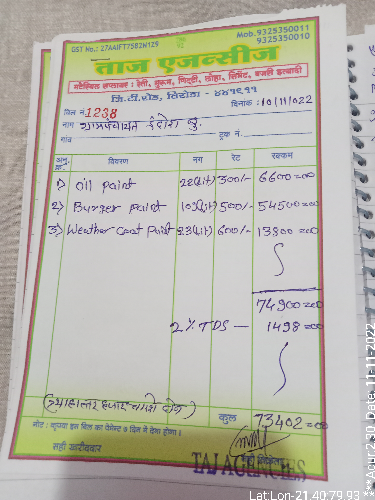 GST No.: 27AAIFT7582N1Z9
Mob.9325350011
9325350010
ताज एजन्सीज
मटेरियल सप्लायर : रेती, चुरूम, गिट्टी, लोहा, सिमेंट, बजरी इत्यादी
जि.टी.रोड, तिरोडा - ४४१९११
बिल नं 1238
दिनांक : 10/11/2022
नाव ग्रामपंचायत इंदोरा बु.
गांव
ट्रक नं.
अनु. क्र. विवरण नग रेट रक्कम
1) Oil Paint 22(Lit) 300/- 6600=00
2) Burger Paint 109(Lit) 500/- 54500=00
3) Weather Coat Paint 23(Lit) 600/- 13800=00
74900=00
2% TDS — 1498=00
कुल 73402=00
नोट : कृपया इस बिल का पेमेन्ट ७ दिन में देना होगा।
सही खरीददार
TAJ AGENCIES
Lat:Lon-21.40:79.93
***Acur:2.30, Date:11-11-2022